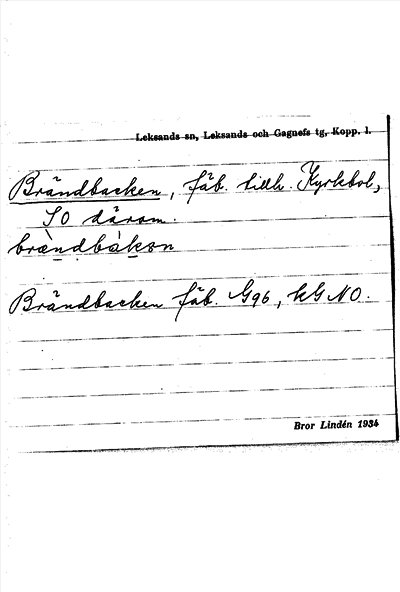 Leksands sn, Leksands och Gagnefs tg, Kopp. l.
Brändbacken, fäb. tillh. Kyrkbol,
SO därom.
brä̀ndbàkən
Brändbacken fäb. G96, kG NO.
Bror Lindén 1934